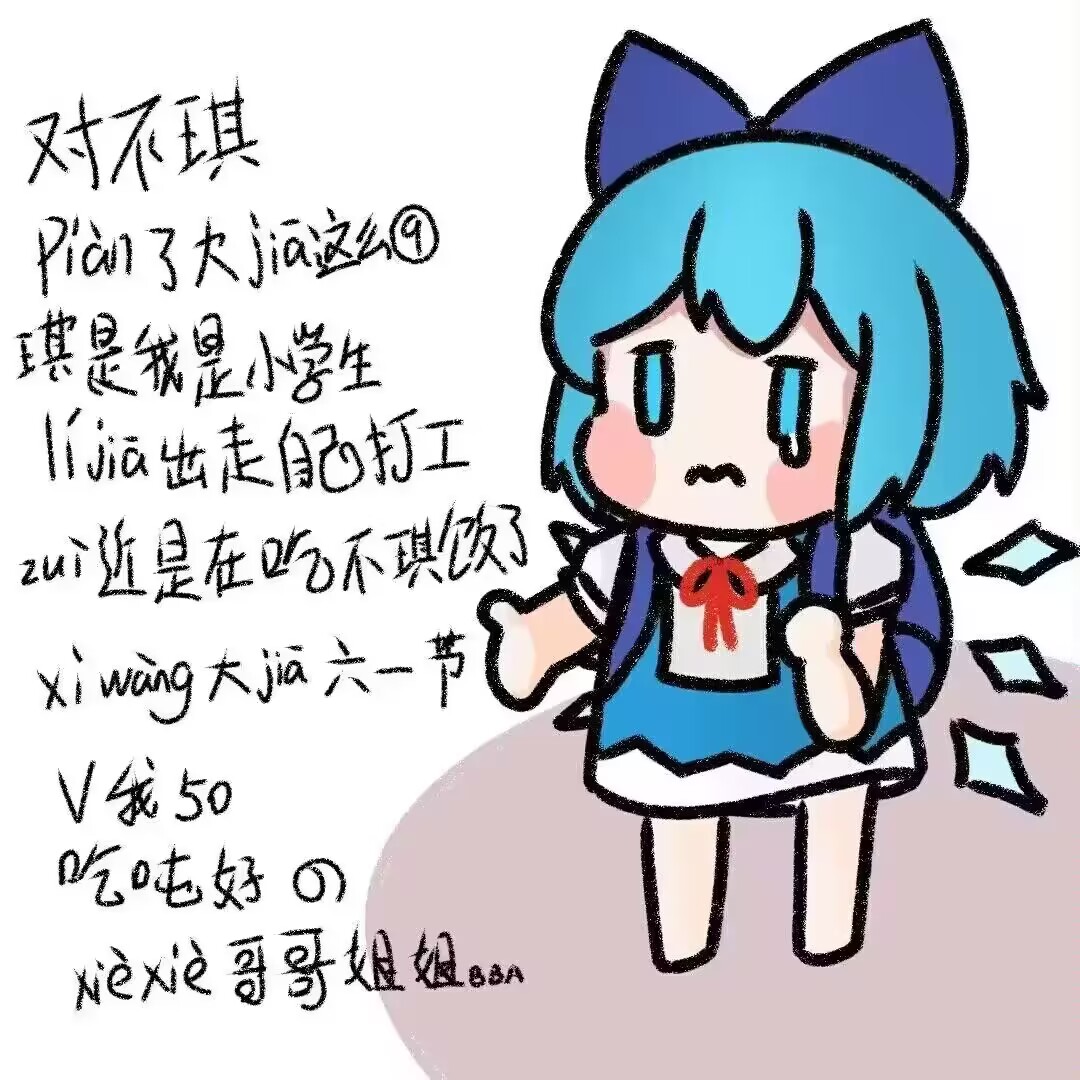 对不琪
piàn了大jiā这么⑨
琪是我是小学生
líjiā出走自己打工
zuì近是在吃不琪饭了
xiwàng大jiā六一节
V我50
吃吨好の
xièxiè哥哥姐姐BBA